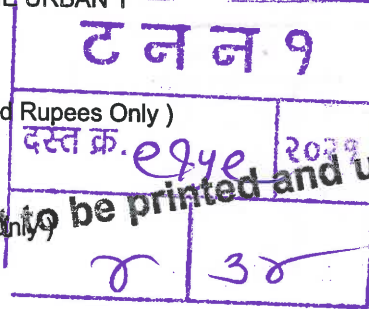 ट न न १
d Rupees Only )
दस्त क्र. ९१५९ २०२१
to be printed and u
४ ३४